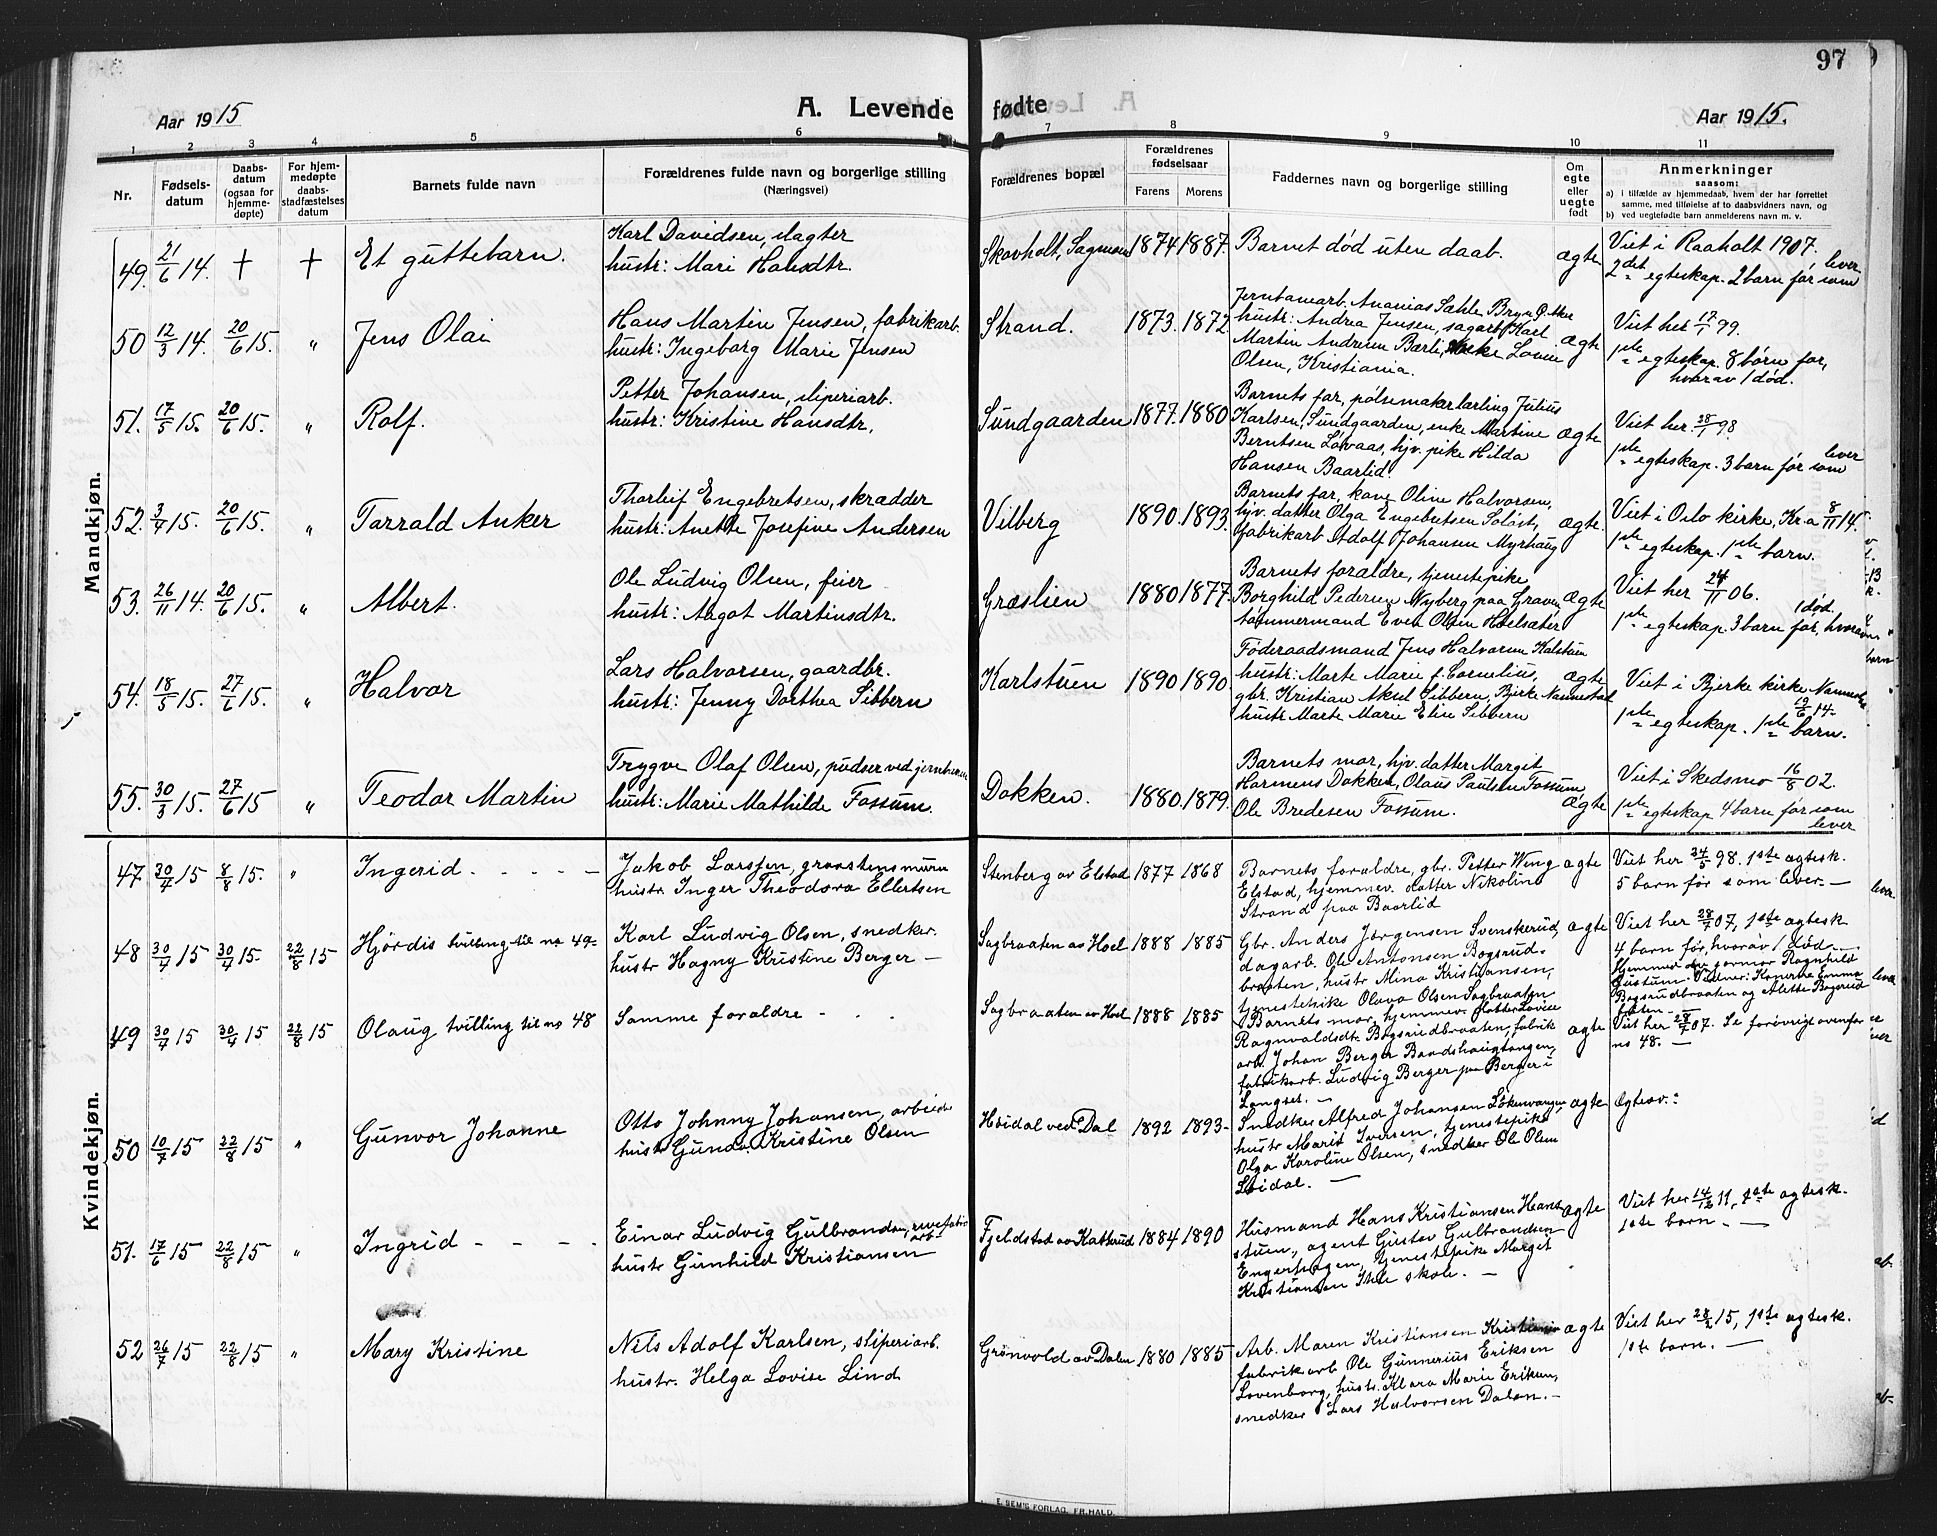 97
Aar 1915
A. Levende fødte
Aar 1915.
1 2 3 4 5 6 7 8 9 10 11
Nr.
Fødsels-
datum
Daabs-
datum
(ogsaa for
hjemme-
døpte)
For hjem-
medøpte
daabs-
stadfæstelses
datum
Barnets fulde navn
Forældrenes fulde navn og borgerlige stilling
(Næringsvei)
Forældrenes bopæl
Forældrenes
fødselsaar
Farens Morens
Faddernes navn og borgerlige stilling
Om
egte
eller
uegte
født
Anmerkninger
saasom:
a) i tilfælde av hjemmedaab, hvem der har forrettet
samme, med tilføielse af to daabsvidners navn, og
b) ved uegtefødte barn anmelderens navn m. v.
Mandkjøn.
49. 21/6 14. + + Et guttebarn.
Karl Davidsen, slagter
hustr: Mari Hansdtr.
Skovholt, Sagmoen 1874 1887. Barnet død uten daab. ægte
Viet i Raaholt 1907.
2det egteskap. 2 barn før som
lever
50 12/3 14. 20/6 15. " Jens Olai
Hans Martin Jensen, fabrikarb.
hustr: Ingeborg Marie Jensen
Strand. 1873. 1872
hustr: Andrea Jensen, sagarb. Karl
Olsen, Kristiania.
ægte
Viet her 17/1 99.
1ste egteskap. 8 børn før,
hvorav 1 død.
51. 17/5 15. 20/6 15. " Rolf.
Petter Johansen, sliperiarb.
hustr: Kristine Hansdtr.
Sundgaarden 1877. 1880
Barnets far, pølsemakerlærling Julius
Karlsen, Sundgaarden, enke Martine
Berntsen Løvaas, hjv. pike Hilda
Hansen Baarlid.
ægte
Viet her 28/1 98
1ste egteskap. 3 barn før som
lever
52. 3/4 15. 20/6 15. " Tarrald Anker
Thorleif Engebretsen, skrædder
hustr: Anette Josefine Andersen
Vilberg 1890. 1893.
Barnets far, kone Oline Halvorsen,
hjv. datter Olga Engebretsen Soløst,
fabrikarb Adolf Johansen Myrhaug
ægte.
Viet i Oslo kirke, Kr.a 8/11 14.
1ste egteskap. 1ste barn.
53. 26/11 14. 20/6 15. " Albert.
Ole Ludvig Olsen, feier
hustr: Aagot Martinsdtr.
Græslien 1880 1877.
Barnets forældre, tjenestepike
Borghild Pedersen Nyberg paa Graven
tømmermand Even Olsen Hoelsæter
ægte
Viet her 24/11 06.
1ste egteskap. 3 barn før, hvorav
1 død.
54. 18/5 15. 27/6 15. " Halvor
Lars Halvorsen, gaardbr.
hustr: Jenny Dorthea Sibbern
Karlstuen 1890 1890.
Føderaadsmand Jens Halvorsen Kalstuen
hustr: Marte Marie f. Cornelius,
gbr. Kristian Aksel Sibbern, Bjerke Nannestad
hustr Marte Marie Elise Sibbern
ægte
Viet i Bjerke kirke Nannestad
19/6 14.
1ste egteskap. 1ste barn.
55. 30/3 15. 27/6 15 " Teodor Martin
Trygve Olaf Olsen, pudser ved jernbanen
hustr: Marie Mathilde Fossum.
Dokken. 1880. 1879.
Barnets mor, hjv. datter Margit
Harmens Dokken, Olaus Paulsen Fossum,
Ole Bredesen Fossum.
ægte
Viet i Skedsmo 16/8 02.
1ste egteskap 4 barn før som
lever
Kvindekjøn.
47. 30/4 15 8/8 15. " Ingerid - - - -
Jakob Larssen, graastensmurer
hustr Inger Theodora Ellertsen
Stenberg av Elstad 1877 1868
Barnets forældre, gbr. Petter Wing
Elstad, hjemmev. datter Nikoline
Strand paa Baarlid
ægte
Viet her 24/5 98. 1ste ægtesk.
5 barn før som lever. —
48 30/4 15 30/4 15. 22/8 15 Hjørdis tvilling til no 49-
Karl Ludvig Olsen, snedker.
hustr Hagny Kristine Berger —
Sagbraaten av Hoel 1888 1885
Gbr. Anders Jørgensen Svenskerud,
dagarb. Ole Antonsen Bogsrud-
braaten, hustr Mina Kristiansen,
tjenestepike Olava Olsen Sagbraaten
ægte
Viet her 28/7 07, 1ste ægtesk.
4 barn før, hvorav 1 død. —
Hjemmed. av jormor Ragnhild
Gustum. Vidner: Konerne Emma
Bogsrudbraaten og Alette Bogsrud
braten. —
49 30/4 15 30/4 15 22/8 15 Olaug tvilling til no 48
Samme forældre - - -
Sagbraaten av Hoel 1888 1885
Barnets mor, hjemmev. datter Lovise
Ragnvaldsdt. Bogsrudbraaten, fabrik
arb. Johan Berger Baadshaugtangen,
fabrikarb. Ludvig Berger paa Berger i
Langset. —
ægte
Viet her 28/7 07. Se forøvrigt ovenfor
no 48. —
50 10/7 15 22/8 15 " Gunvor Johanne
Otto Johnny Johansen, arbeider
hustr Gunda Kristine Olsen
Høidal ved Dal 1892 1893-
Snedker Alfred Johansen Løkenvangen,
hustr Marit Iversen, tjenestepike
Olga Karoline Olsen, snedker Ole Olsen
Høidal. —
ægte
51. 17/6 15 22/8 15 " Ingrid - - - -
Einar Ludvig Gulbrandsen, revefabrik
arb-
hustr Gunhild Kristiansen
Fjeldstad av Katterud 1884 1890
Husmand Hans Kristiansen Hans-
stuen, agent Gustav Gulbrandsen
Engerhagen, tjenestepike Marget
Kristiansen Ihle skole. —
ægte
Viet her 14/12 11, 1ste ægtesk.
1ste barn. —
52 26/7 15 22/8 15 " Mary Kristine
Nils Adolf Karlsen, sliperiarb.
hustr. Helga Lovise Lind
Grønvold av Dalen 1880 1885
Arb. Maren Kristiansen
fabrikarb Ole Gunnerius Eriksen
Lovenborg, hustr. Klara Marie Eriksen,
snedker Lars Halvorsen Dalen. —
ægte
Viet her 28/2 15, 1ste ægtesk.
1ste barn. —
E. SEM'S FORLAG, FR.HALD.